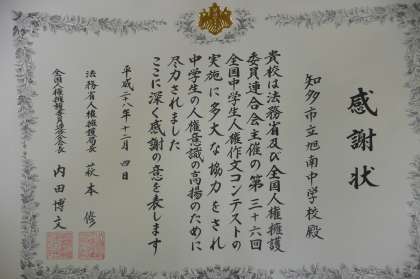 感謝状
知多市立旭南中学校殿
貴校は法務省及び全国人権擁護
委員連合会主催の第三十六回
全国中学生人権作文コンテストの
実施に多大な協力をされ
中学生の人権意識の高揚のために
尽力されました
ここに深く感謝の意を表します
平成二八年十二月四日
法務省人権擁護局長 萩本修
全国人権擁護委員連合会長 内田博文